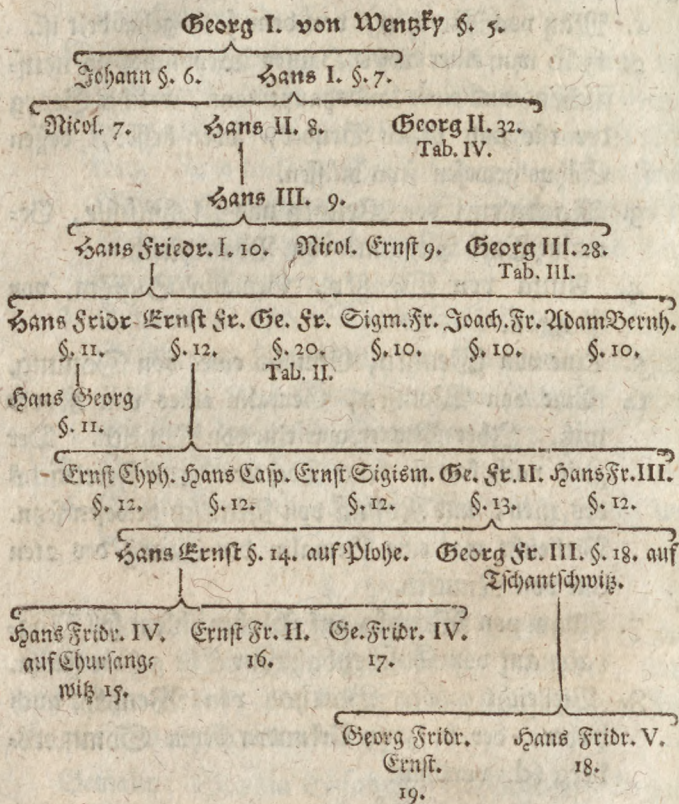 Georg I. von Wentzky §. 5.
Johann §. 6. Hans I. §. 7.
Nicol. 7. Hans II. 8. Georg II. 32.
Tab. IV.
Hans III. 9.
Hans Friedr. I. 10. Nicol. Ernst 9. Georg III. 28.
Tab. III.
Hans Fridr Ernst Fr. Ge. Fr. Sigm. Fr. Joach. Fr. Adam Bernh.
§. 11. §. 12. §. 20. §. 10. §. 10. §. 10.
Tab. II.
Hans Georg
§. 11.
Ernst Chph. Hans Casp. Ernst Sigism. Ge. Fr. II. Hans Fr. III.
§. 12. §. 12. §. 12. §. 13. §. 12.
Hans Ernst §. 14. auf Plohe. Georg Fr. III. §. 18. auf
Tschantschwitz.
Hans Fridr. IV. Ernst Fr. II. Ge. Fridr. IV.
auf Chursang- 16. 17.
witz 15.
Georg Fridr. Hans Fridr. V.
Ernst. 18.
19.